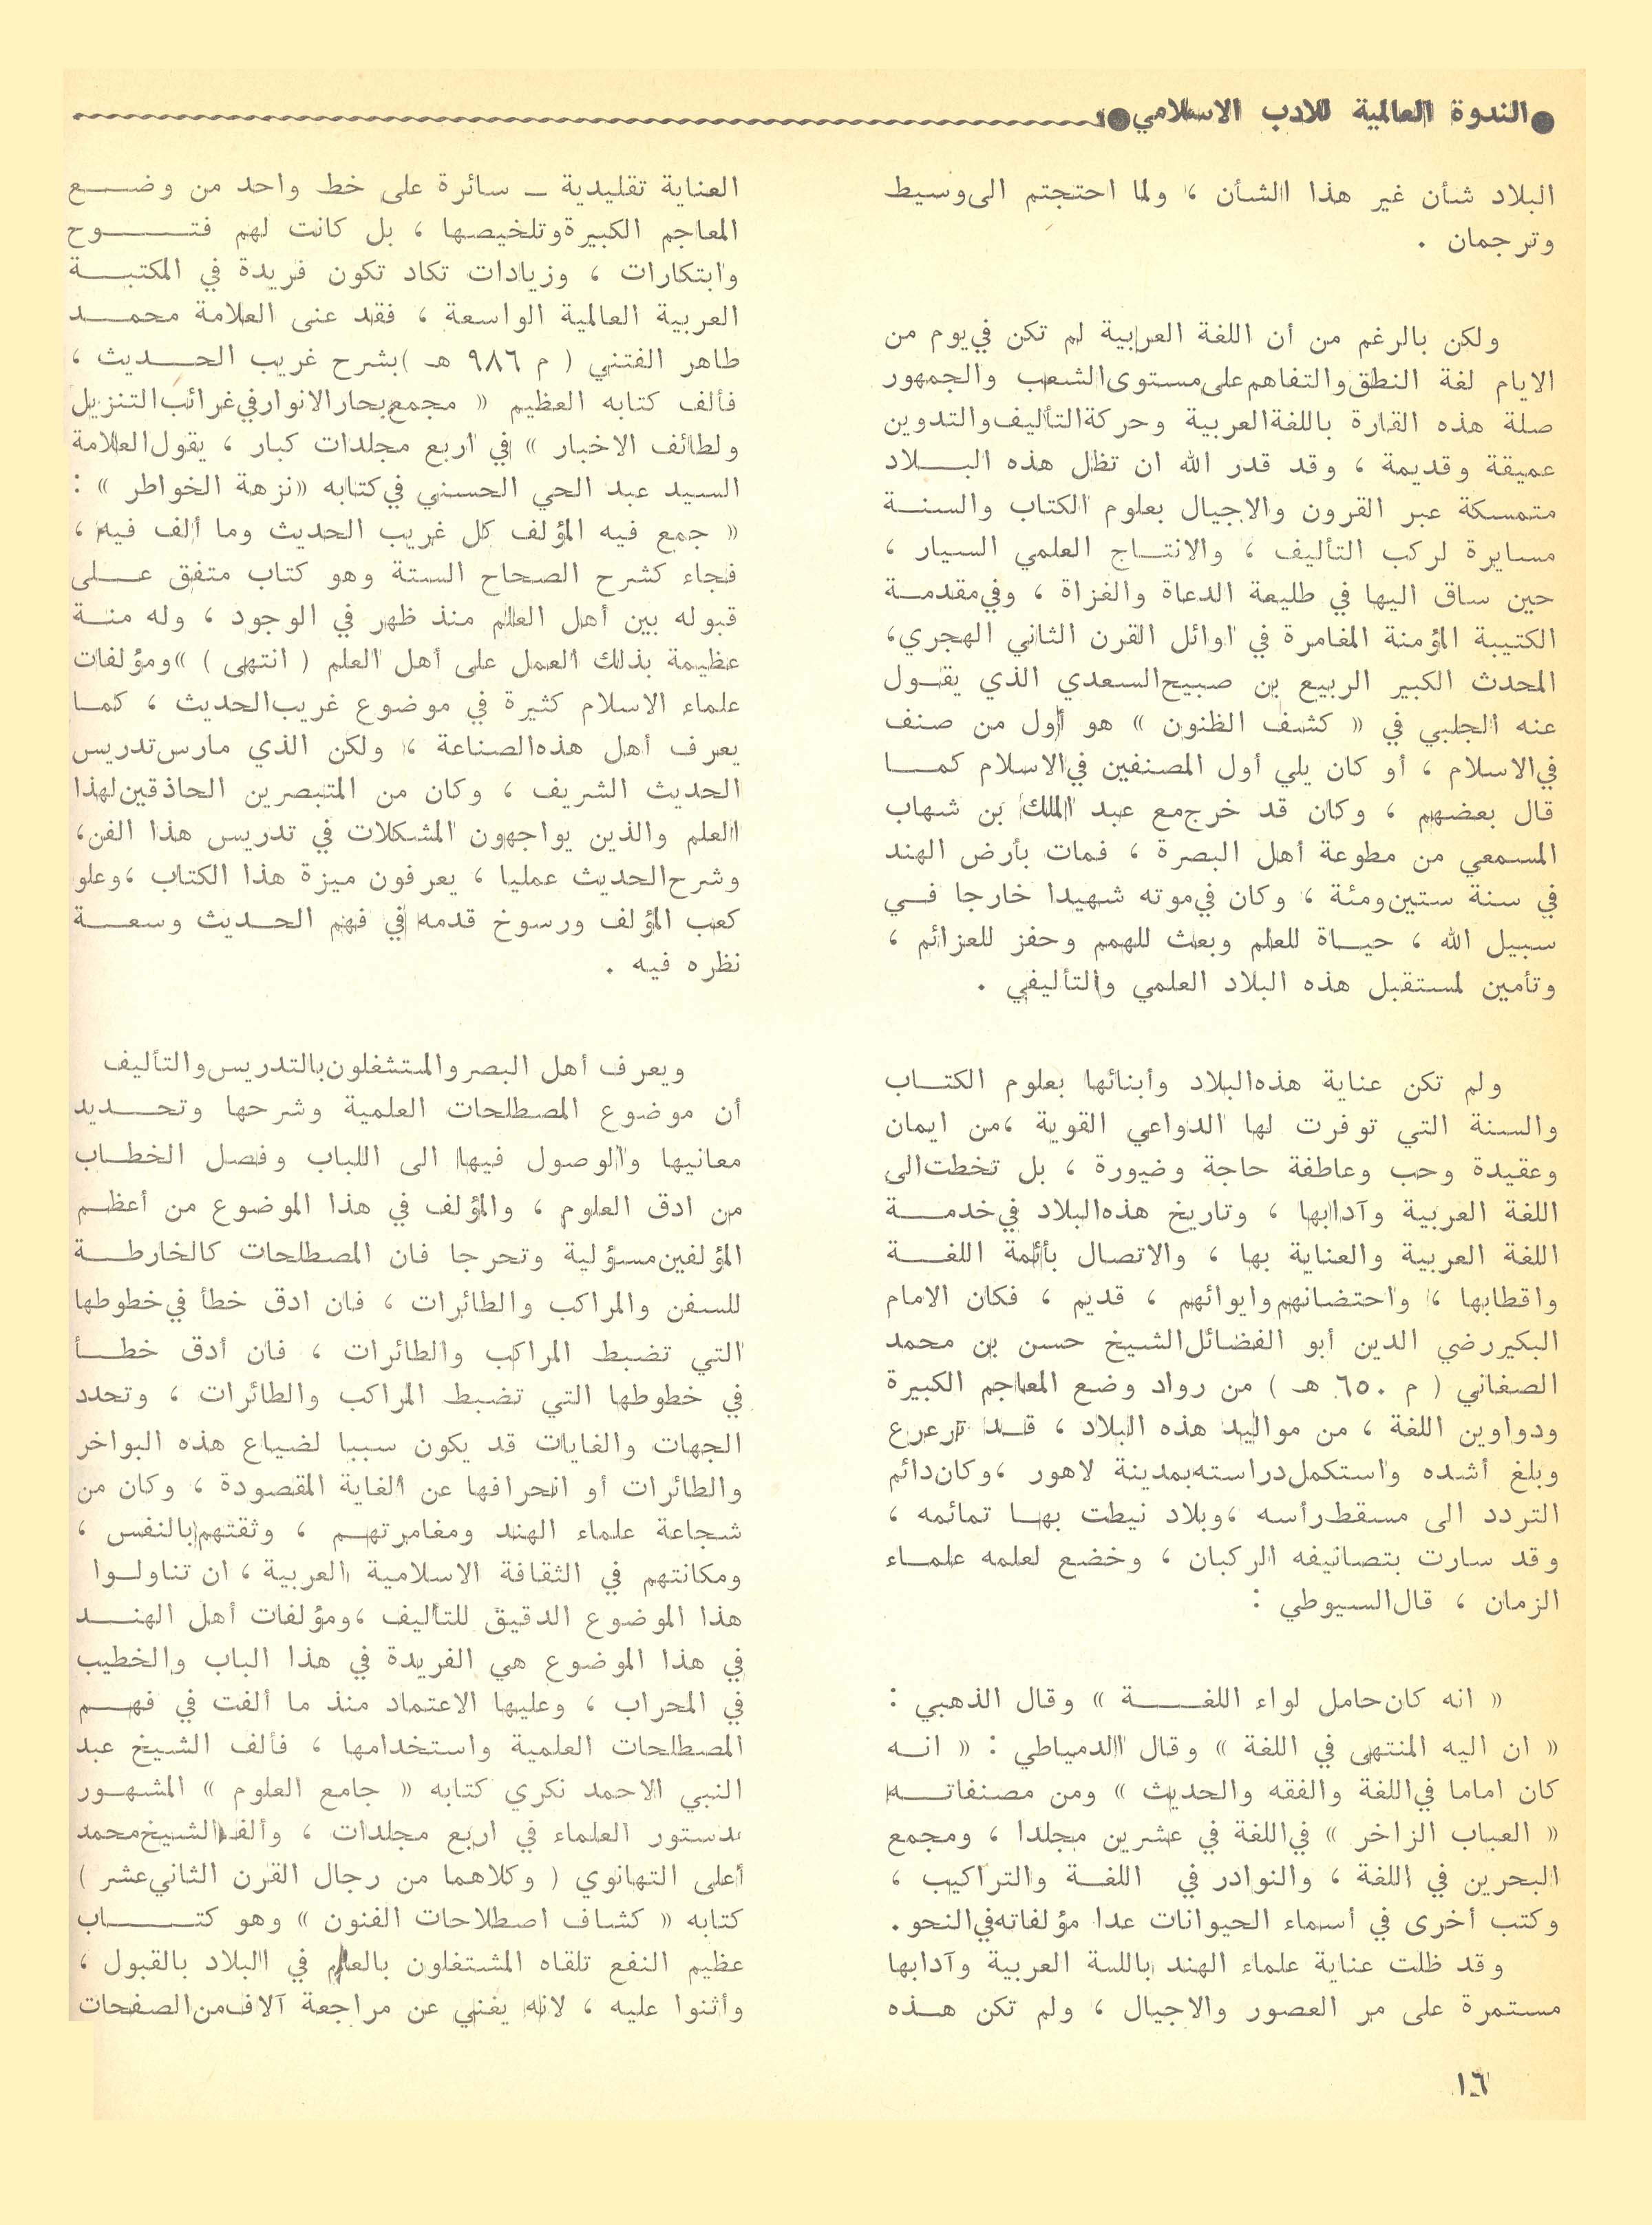 ●الندوة العالمية للادب الاسلامي●
البلاد شأن غير هذا الشأن ، ولما احتجتم الى وسيط
وترجمان .
ولكن بالرغم من أن اللغة العربية لم تكن في يوم من
الايام لغة النطق والتفاهم على مستوى الشعب والجمهور
صلة هذه القارة باللغة العربية وحركة التأليف والتدوين
عميقة وقديمة ، وقد قدر الله ان تظل هذه البلاد
متمسكة عبر القرون والاجيال بعلوم الكتاب والسنة
مسايرة لركب التأليف ، والانتاج العلمي السيار ،
حين ساق اليها في طليعة الدعاة والغزاة ، وفي مقدمة
الكتيبة المؤمنة المغامرة في اوائل القرن الثاني الهجري،
المحدث الكبير الربيع بن صبيح السعدي الذي يقول
عنه الجلبي في « كشف الظنون » هو أول من صنف
في الاسلام ، أو كان يلي أول المصنفين في الاسلام كما
قال بعضهم ، وكان قد خرج مع عبد الملك بن شهاب
المسمعي من مطوعة أهل البصرة ، فمات بأرض الهند
في سنة ستين ومئة ، وكان في موته شهيدا خارجا في
سبيل الله ، حياة للعلم وبعث للهمم وحفز للعزائم ،
وتأمين لمستقبل هذه البلاد العلمي والتأليفي .
ولم تكن عناية هذه البلاد وأبنائها بعلوم الكتاب
والسنة التي توفرت لها الدواعي القوية ،من ايمان
وعقيدة وحب وعاطفة حاجة وضيورة ، بل تخطت الى
اللغة العربية وآدابها ، وتاريخ هذه البلاد في خدمة
اللغة العربية والعناية بها ، والاتصال بأئمة اللغة
واقطابها ، واحتضانهم وايوائهم ، قديم ، فكان الامام
البكير رضي الدين أبو الفضائل الشيخ حسن بن محمد
الصغاني ( م ٦٥٠ هـ ) من رواد وضع المعاجم الكبيرة
ودواوين اللغة ، من مواليد هذه البلاد ، قد ترعرع
وبلغ أشده واستكمل دراسته بمدينة لاهور ،وكان دائم
التردد الى مسقط رأسه ،وبلاد نيطت بها تمائمه ،
وقد سارت بتصانيفه الركبان ، وخضع لعلمه علماء
الزمان ، قال السيوطي :
« انه كان حامل لواء اللغة » وقال الذهبي :
« ان اليه المنتهى في اللغة » وقال الدمياطي : « انه
كان اماما في اللغة والفقه والحديث » ومن مصنفاته
« العباب الزاخر » في اللغة في عشرين مجلدا ، ومجمع
البحرين في اللغة ، والنوادر في اللغة والتراكيب ،
وكتب أخرى في أسماء الحيوانات عدا مؤلفاته في النحو .
وقد ظلت عناية علماء الهند باللسة العربية وآدابها
مستمرة على مر العصور والاجيال ، ولم تكن هذه
العناية تقليدية ــ سائرة على خط واحد من وضع
المعاجم الكبيرة وتلخيصها ، بل كانت لهم فتوح
وابتكارات ، وزيادات تكاد تكون فريدة في المكتبة
العربية العالمية الواسعة ، فقد عنى العلامة محمد
طاهر الفتني ( م ٩٨٦ هـ )بشرح غريب الحديث ،
فألف كتابه العظيم « مجمع بحار الانوار في غرائب التنزيل
ولطائف الاخبار » في اربع مجلدات كبار ، يقول العلامة
السيد عبد الحي الحسني في كتابه «نزهة الخواطر » :
« جمع فيه المؤلف كل غريب الحديث وما ألف فيه ،
فجاء كشرح الصحاح الستة وهو كتاب متفق على
قبوله بين أهل العلم منذ ظهر في الوجود ، وله منة
عظيمة بذلك العمل على أهل العلم ( انتهى ) »ومؤلفات
علماء الاسلام كثيرة في موضوع غريب الحديث ، كما
يعرف أهل هذه الصناعة ، ولكن الذي مارس تدريس
الحديث الشريف ، وكان من المتبصرين الحاذقين لهذا
العلم والذين يواجهون المشكلات في تدريس هذا الفن،
وشرح الحديث عمليا ، يعرفون ميزة هذا الكتاب ،وعلو
كعب المؤلف ورسوخ قدمه في فهم الحديث وسعة
نظره فيه .
ويعرف أهل البصر والمتشغلون بالتدريس والتأليف
أن موضوع المصطلحات العلمية وشرحها وتحديد
معانيها والوصول فيها الى اللباب وفصل الخطاب
من ادق العلوم ، والمؤلف في هذا الموضوع من أعظم
المؤلفين مسؤلية وتحرجا فان المصطلحات كالخارطة
للسفن والمراكب والطائرات ، فان ادق خطأ في خطوطها
التي تضبط المراكب والطائرات ، فان أدق خطأ
في خطوطها التي تضبط المراكب والطائرات ، وتحدد
الجهات والغايات قد يكون سببا لضياع هذه البواخر
والطائرات أو انحرافها عن الغاية المقصودة ، وكان من
شجاعة علماء الهند ومغامرتهم ، وثقتهم بالنفس ،
ومكانتهم في الثقافة الاسلامية العربية ، ان تناولوا
هذا الموضوع الدقيق للتأليف ،ومؤلفات أهل الهند
في هذا الموضوع هي الفريدة في هذا الباب والخطيب
في المحراب ، وعليها الاعتماد منذ ما ألفت في فهم
المصطلحات العلمية واستخدامها ، فألف الشيخ عبد
النبي الاحمد نكري كتابه « جامع العلوم » المشهور
بدستور العلماء في اربع مجلدات ، وألف الشيخ محمد
أعلى التهانوي ( وكلاهما من رجال القرن الثاني عشر )
كتابه « كشاف اصطلاحات الفنون » وهو كتاب
عظيم النفع تلقاه المشتغلون بالعلم في البلاد بالقبول ،
وأثنوا عليه ، لانه يغني عن مراجعة آلاف من الصفحات
١٦